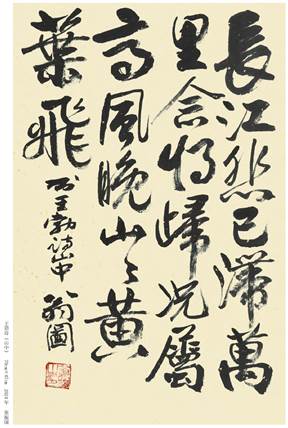 長江悲已滯萬
里念將歸況屬
高風晚山々黃
葉飛
书王勃詩山中
翁圖